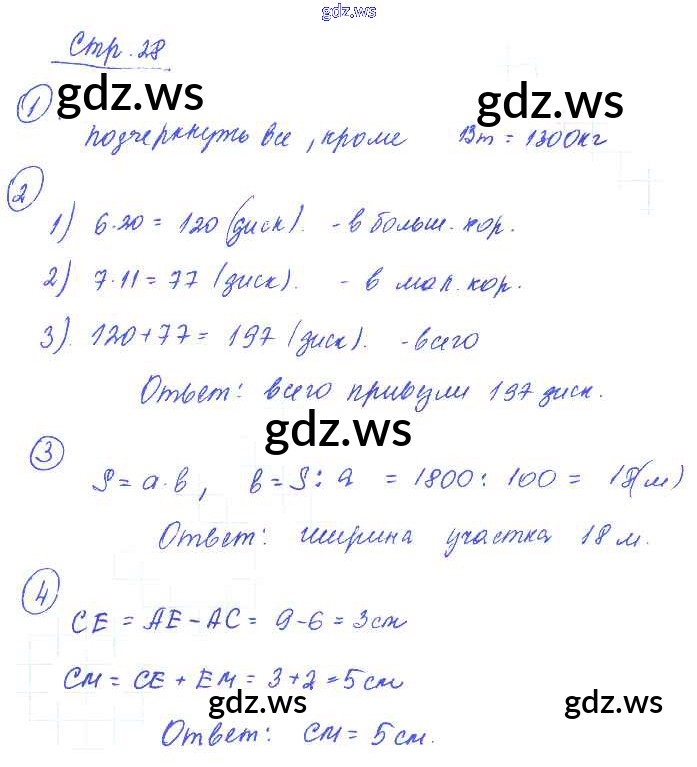 gdz.ws
Стр. 28
gdz.ws gdz.ws
1 подчеркнуть все, кроме 13т = 1300кг
2
1) 6·20 = 120 (диск). - в больш. кор.
2) 7·11 = 77 (диск). - в мал. кор.
3) 120+77 = 197 (диск). - всего
Ответ: всего привезли 197 диск.
gdz.ws
3
S = a·b, b = S : a = 1800 : 100 = 18(м)
Ответ: ширина участка 18 м.
4
CE = AE - AC = 9-6 = 3 см
CM = CE + EM = 3+2 = 5 см
gdz.ws gdz.ws
Ответ: CM = 5 см.